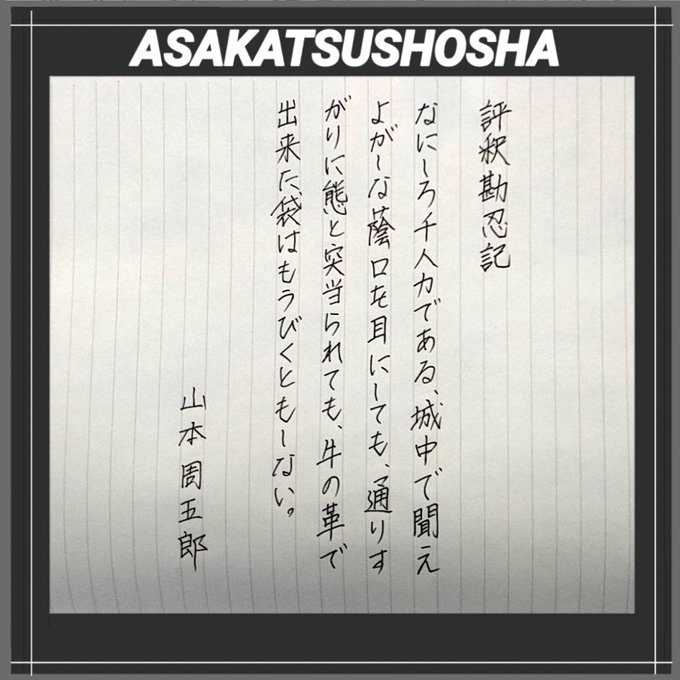 ASAKATSUSHOSHA
評釈勘忍記
なにしろ千人力である、城中で聞え
よがしな蔭口を耳にしても、通りす
がりに態と突当られても、牛の革で
出来た袋はもうびくともしない。
山本周五郎